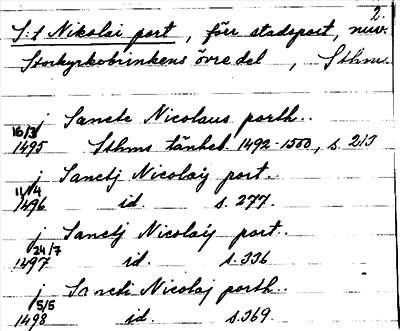 2.
S:t Nikolai port, förr stadsport, nuv.
Storkyrkobrinkens övre del, Sthm.
j Sancte Nicolaus porth..
16/3 1495 Sthms tänkeb. 1492-1500, s. 213
j Sanctj Nicolaij port.
11/4 1496 id. s. 277.
j Sanctj Nicolaij port..
24/7 1497 id. s. 336
j Sancti Nicolaj porth..
5/5 1498 id. s. 369.